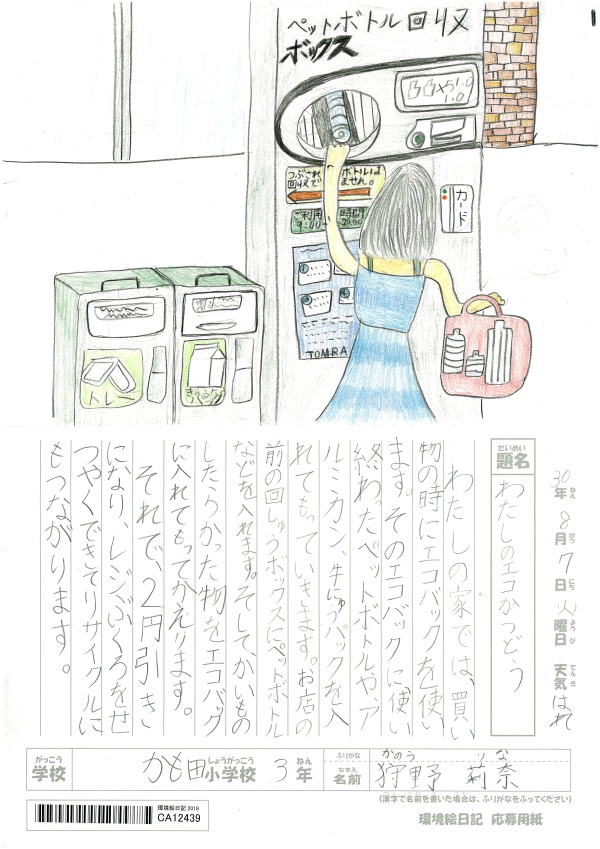 ペットボトル回収
ボックス
つぶされ ボトルは
回収で ません。
ご利用 時間
9:00
カード
TOMRA
トレー
30年 8月 7日 火曜日 天気 はれ
ねん がつ にち ようび てんき
だいめい
題名 わたしのエコかつどう
わたしの家では、買い
物の時にエコバックを使い
ます。そのエコバックに、使い
終わったペットボトルや、ア
ルミカン、牛にゅうパックを入
れてもっていきます。お店の
前の回しゅうボックスにペットボトル
などを入れます。そして、かいもの
したらかった物をエコバッグ
に入れてもってかえります。
それで、2円引き
になり、レジぶくろをせ
つやくできてリサイクルに
もつながります。
がっこう しょうがっこう ねん
学校 かも田小学校 3年
ふりがな かのう りな
なまえ
名前 狩野 莉奈
(漢字で名前を書いた場合は、ふりがなをふってください)
環境絵日記 2018
CA12439
環境絵日記 応募用紙